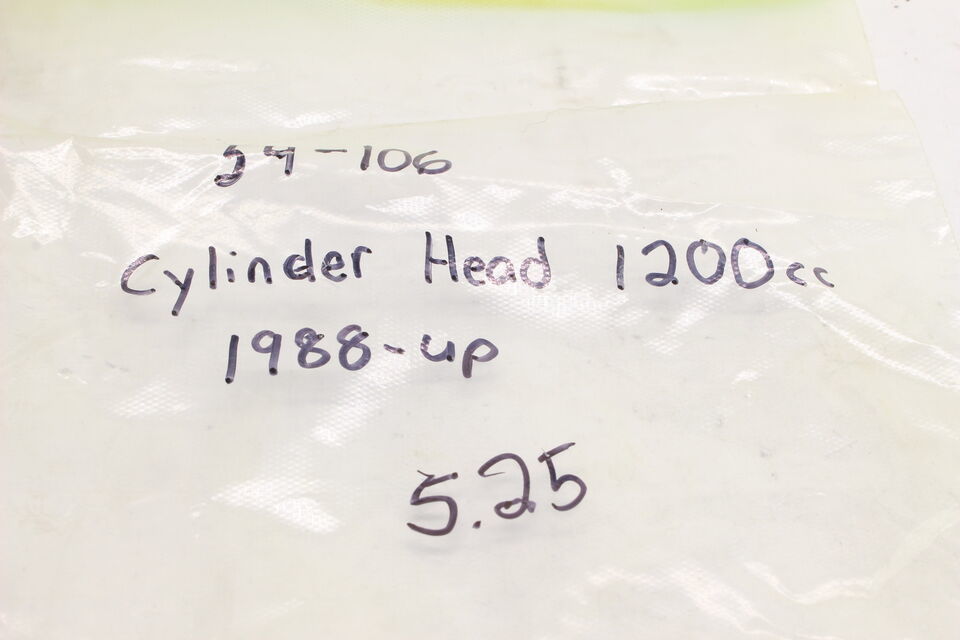 24-106
Cylinder Head 1200cc
1988-up
5.25